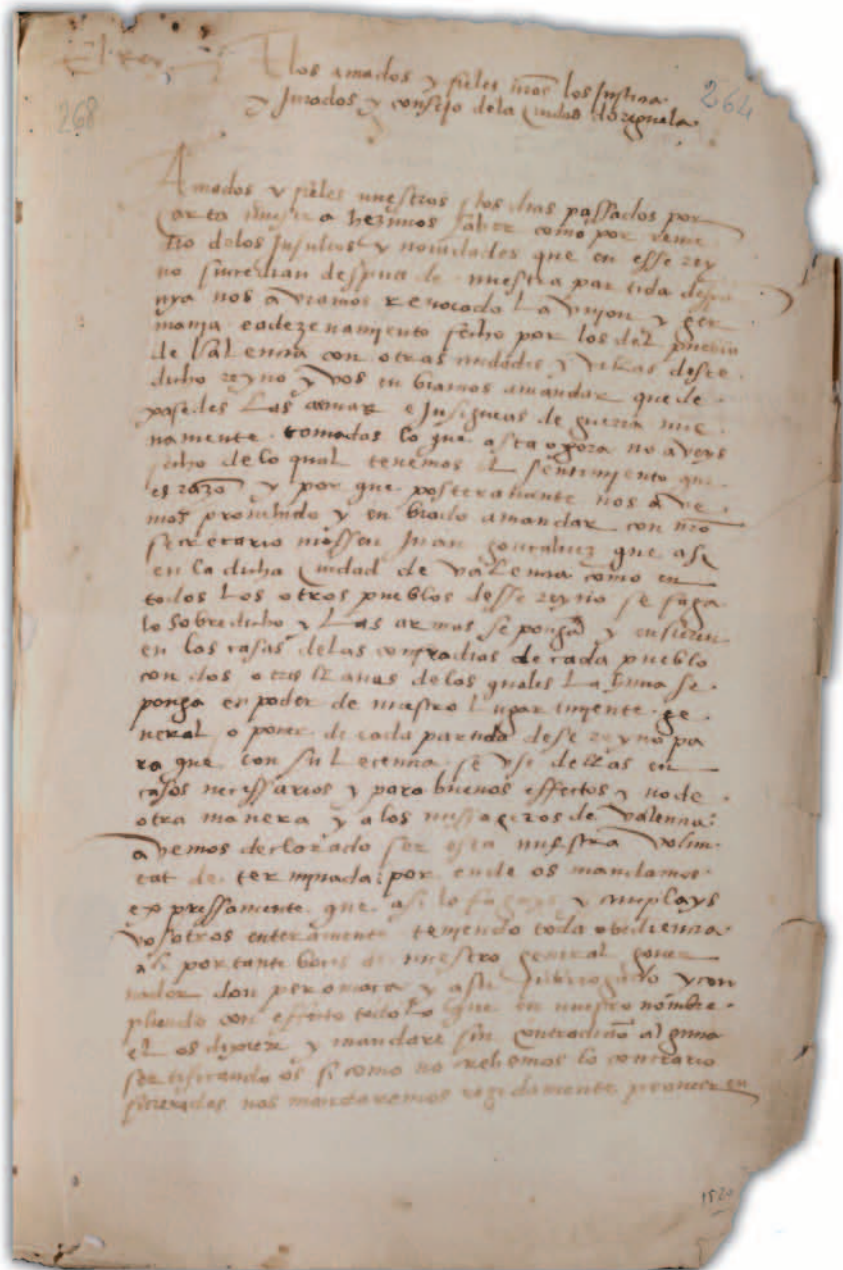 El rey
A los amados y fieles nros los Justicia
264
268
y Jurados y consejo dela ciudad doreguela
Amados y fieles nuestros estos dias passados por
carta nuestra hezimos saber como por reme
dio delos Insultos y nouidades que en esse rey
no sucedian despues de nuestra partida despa
nya nos auiamos reuocado La vnjon y ger
manja eadezenamjento fecho por los del pueblo
de Valencia con otras ciudades y villas desse
dicho reyno y vos enbiamos amandar que de
posedes Las armas e Jnsignias de guerra nue
uamente tomadas lo que asta agora no aveys
fecho delo qual tenemos el sentimjento que
es razo y por que posteramente nos ave
mos prouehido y enbiado amandar con nro
secretario mossen Juan gonçaluez que asi
en La dicha ciudad de valencia como en
todos Los otros pueblos desse reyno se faga
lo sobredicho y Las armas se ponga y ensierren
en Las casas delas confradias de cada pueblo
con dos o tres llaues delos quales La vna se
ponga en poder de nuestro Lugar tinjente ge
neral o porter de cada partido dese reyno pa
ra que con su Lecencia se vse dellas en
casos necessarios y para buenos effectos y node
otra manera y alos missageros de valencia
avemos declarado ser esta nuestra volun
tat determjnada por ende os mandamos
expressamente que asi lo fagays y cumplays
vosotros enteramente tenjendo toda obediencia
al portantveus de nuestro general gouer
nador don peromaça y asu subrrogado y con
pliendo con effecto todo Lo que en nuestro nombre
el os dixere y mandare sin contradicio alguna
sertificando os si como no crehemos lo contrario
fizierades nos mandaremos regidamente proueer en
1520